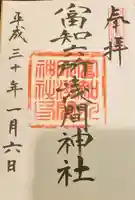 奉拝
富知六所浅間神社
平成三十年一月六日